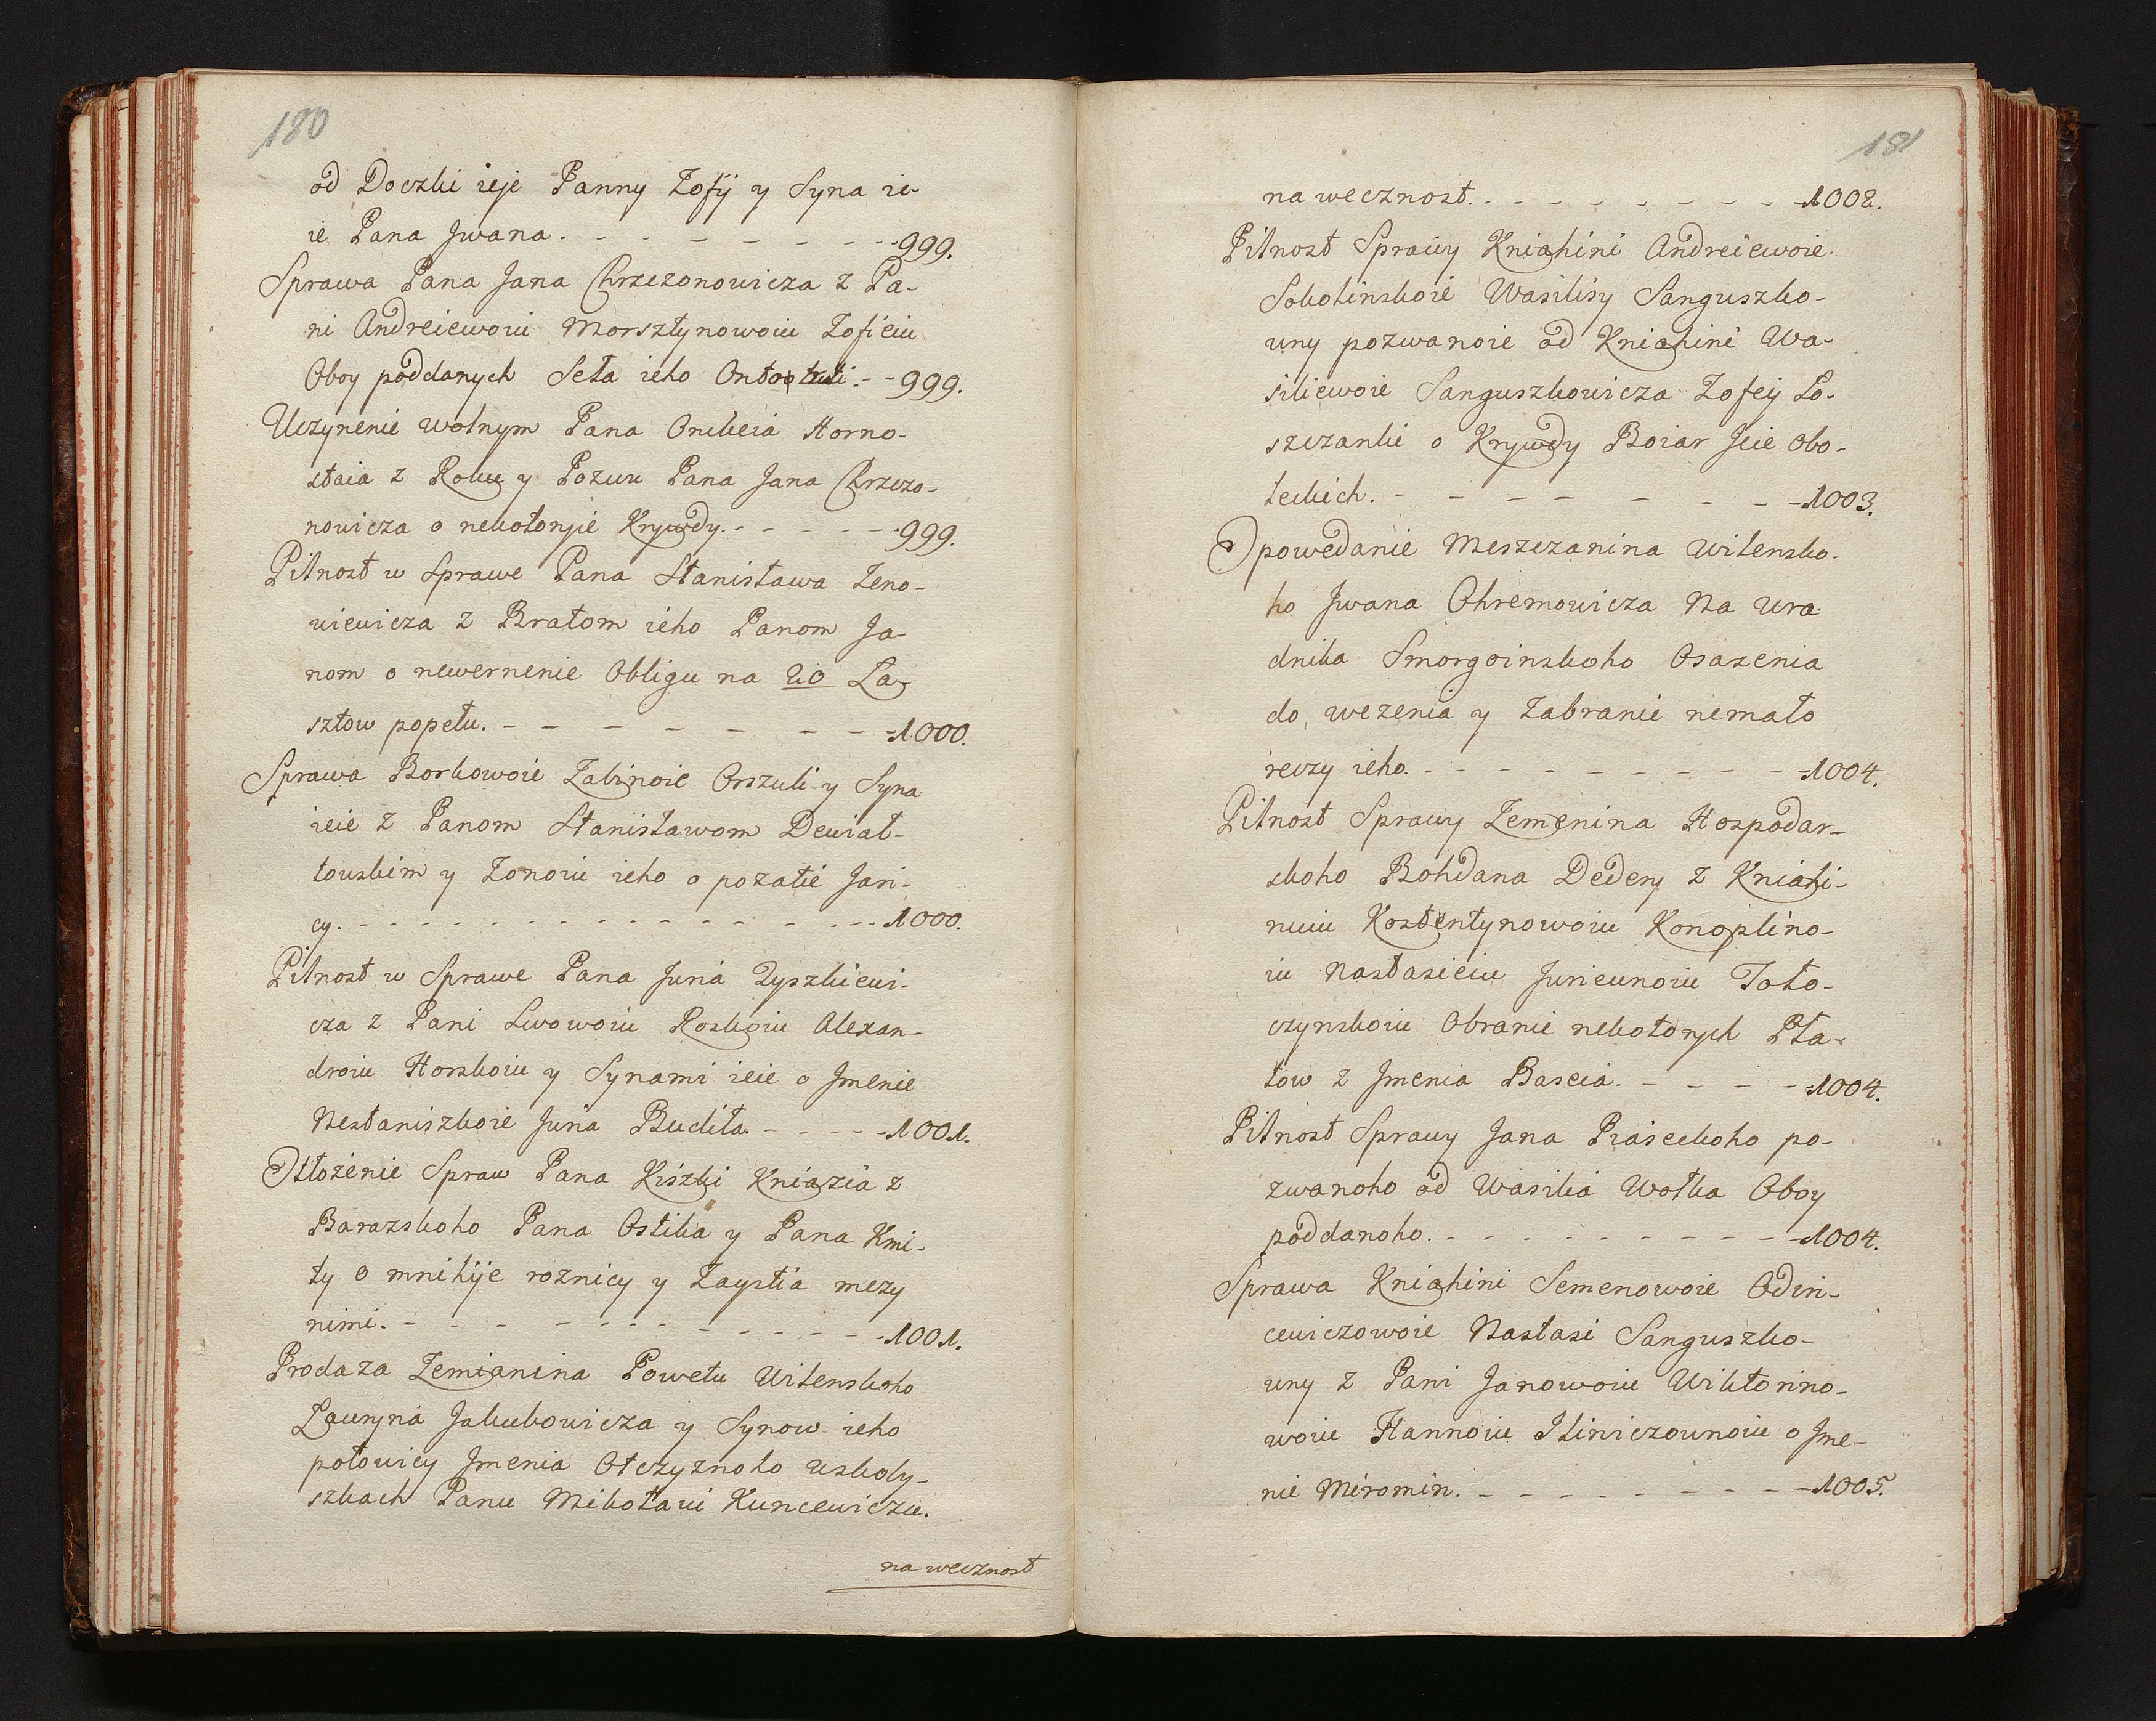 180
od Doczki ieje Panny Zofÿ y Syna ie-
ie Pana Jwana. - - - - - - - - 999.
Sprawa Pana Jana Chrzczonowicza z Pa-
ni Andreiewoiu Morsztynowoiu Zofieiu
Oboy poddanych Seła ieho - - 999.
Uczynenie wolnym Pana Onikeia Horno-
staia z Roku y Pozwu Pana Jana Chrzczo-
nowicza o nekotoryie Krywdy. - - - - - - 999.
Pilnost w Sprawe Pana Stanisława Zeno-
wiewicza z Bratom ieho Panom Ja-
nom o newernenie Obligu na 20 Ła-
sztow popełu. - - - - - - - - 1000.
Sprawa Borkowoie Zabinoie Orszuli y Syna
ieie z Panom Stanisławom Dewiat-
towskim y Zonoiu ieho o pozatie Jari-
cy. - - - - - - - - - - - - - - 1000.
Pilnost w Sprawe Pana Juria Tyszkiewi-
cza z Pani Lwowoiu Roskoiu Alexan-
droiu Horskoiu y Synami ieie o Jmenie
Nestaniszkoie Juria Budiła. - - - - - 1001.
Otłożenie Spraw Pana Kiszki Kniazia z
Barazskoho Pana Ostika y Pana Kmi-
ty o mnihije roznicy y Zaystia mezy
nimi. - - - - - - - - - - - - 1001.
Prodaza Zemianina Powetu Wilenskoho
Ławryna Jakubowicza y Synow ieho
połowicy Jmenia Otczyznoho Uskoły-
szkach Panu Mikołaui Kuncewiczu.
na wecznost
181
na wecznost. - - - - - - - - - 1002.
Pilnost Sprawy Kniahini Andreiewoie
Sokolinskoie Wasilisy Sanguszko-
wny pozwanoie od Kniahini Wa-
siliewoie Sanguszkowicza Zofeÿ Ło-
szczanki o Krywdy Boiar Jeie Obo-
leckich. - - - - - - - - 1003.
Opowedanie Meszczanina Wilensko-
ho Jwana Ohremowicza Na Ura-
dnika Smorgoinskoho Osazenia
do wezenia y Zabranie nemało
reczy ieho. - - - - - - - - - 1004.
Pilnost Sprawy Zemenina Hospodar-
skoho Bohdana Dedery z Kniahi-
nuiu Kostentynowoiu Konoplino-
iu Nastasieiu Juriewnoiu Toło-
czynskoiu Obranie nekotorych Pła-
tow z Jmenia Baseia. - - - - 1004.
Pilnost Sprawy Jana Piaseckoho po-
zwanoho od Wasilia Wołka Oboy
poddanoho. - - - - - - - - - 1004.
Sprawa Kniahini Semenowoie Odin-
cewiczowoie Nastasi Sanguszko-
wny z Pani Janowoiu Wiktorino-
woiu Hannoiu Iliniczownoiu o Jme-
nie Miromin. - - - - - - - - - 1005.